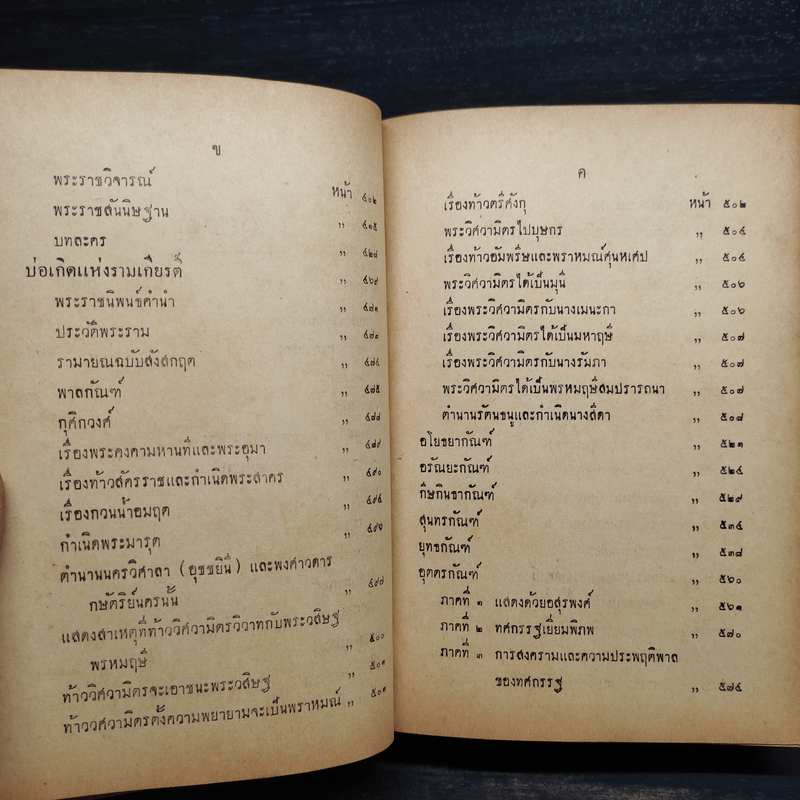 ข
หน้า
พระราชวิจารณ์ ๔๐๒
พระราชสันนิษฐาน ,, ๔๑๕
บทละคร ,, ๔๒๗
บ่อเกิดแห่งรามเกียรติ์ ,, ๔๖๙
พระราชนิพนธ์คำนำ ,, ๔๗๑
ประวัติพระราม ,,
รามายณฉบับสังสกฤต ,, ๔๗๔
พาลกัณฑ์ ,, ๔๗๕
กุศิกวงศ์ ,, ๔๘๘
เรื่องพระคงคามหานทีและพระอุมา ,, ๔๘๙
เรื่องท้าวสัครราชและกำเนิดพระสาคร ,, ๔๙๐
เรื่องกวนน้ำอมฤต ,, ๔๙๔
กำเนิดพระมารุต ,, ๔๙๖
ตำนานนครวิศาลา (อุชชยินี) และพงศาวดาร
กษัตริย์นครนั้น ,, ๔๙๗
แสดงสาเหตุที่ท้าววิศวามิตรวิวาทกับพระวสิษฐ
พรหมฤษี ,, ๕๐๐
ท้าววิศวามิตรจะเอาชนะพระวสิษฐ ,, ๕๐๑
ท้าววิศวามิตรตั้งความพยายามจะเป็นพราหมณ์ ,, ๕๐๑
ค
เรื่องท้าวตรีศังกุ หน้า ๕๐๒
พระวิศวามิตรไปบุษกร ,, ๕๐๔
เรื่องท้าวอัมพรีษและพราหมณ์ศุนหเศป ,, ๕๐๔
พระวิศวามิตรได้เป็นมุนี ,, ๕๐๖
เรื่องพระวิศวามิตรกับนางเมนะกา ,, ๕๐๖
เรื่องพระวิศวามิตรได้เป็นมหาฤษี ,, ๕๐๗
เรื่องพระวิศวามิตรกับนางรัมภา ,, ๕๐๗
พระวิศวามิตรได้เป็นพรหมฤษีสมปรารถนา ,, ๕๐๗
ตำนานรัตนธนูและกำเนิดนางสีดา ,, ๕๐๘
อโยธยากัณฑ์ ,, ๕๒๑
อรัณยะกัณฑ์ ,, ๕๒๔
กีษกินธากัณฑ์ ,, ๕๒๙
สุนทรกัณฑ์ ,, ๕๓๔
ยุทธกัณฑ์ ,, ๕๓๘
อุตตรกัณฑ์ ,, ๕๖๐
ภาคที่ ๑ แสดงด้วยอสุรพงศ์ ,, ๕๖๑
ภาคที่ ๒ ทศกรรฐเยี่ยมพิภพ ,, ๕๗๐
ภาคที่ ๓ การสงครามและความประพฤติพาล
ของทศกรรฐ ,, ๕๗๔